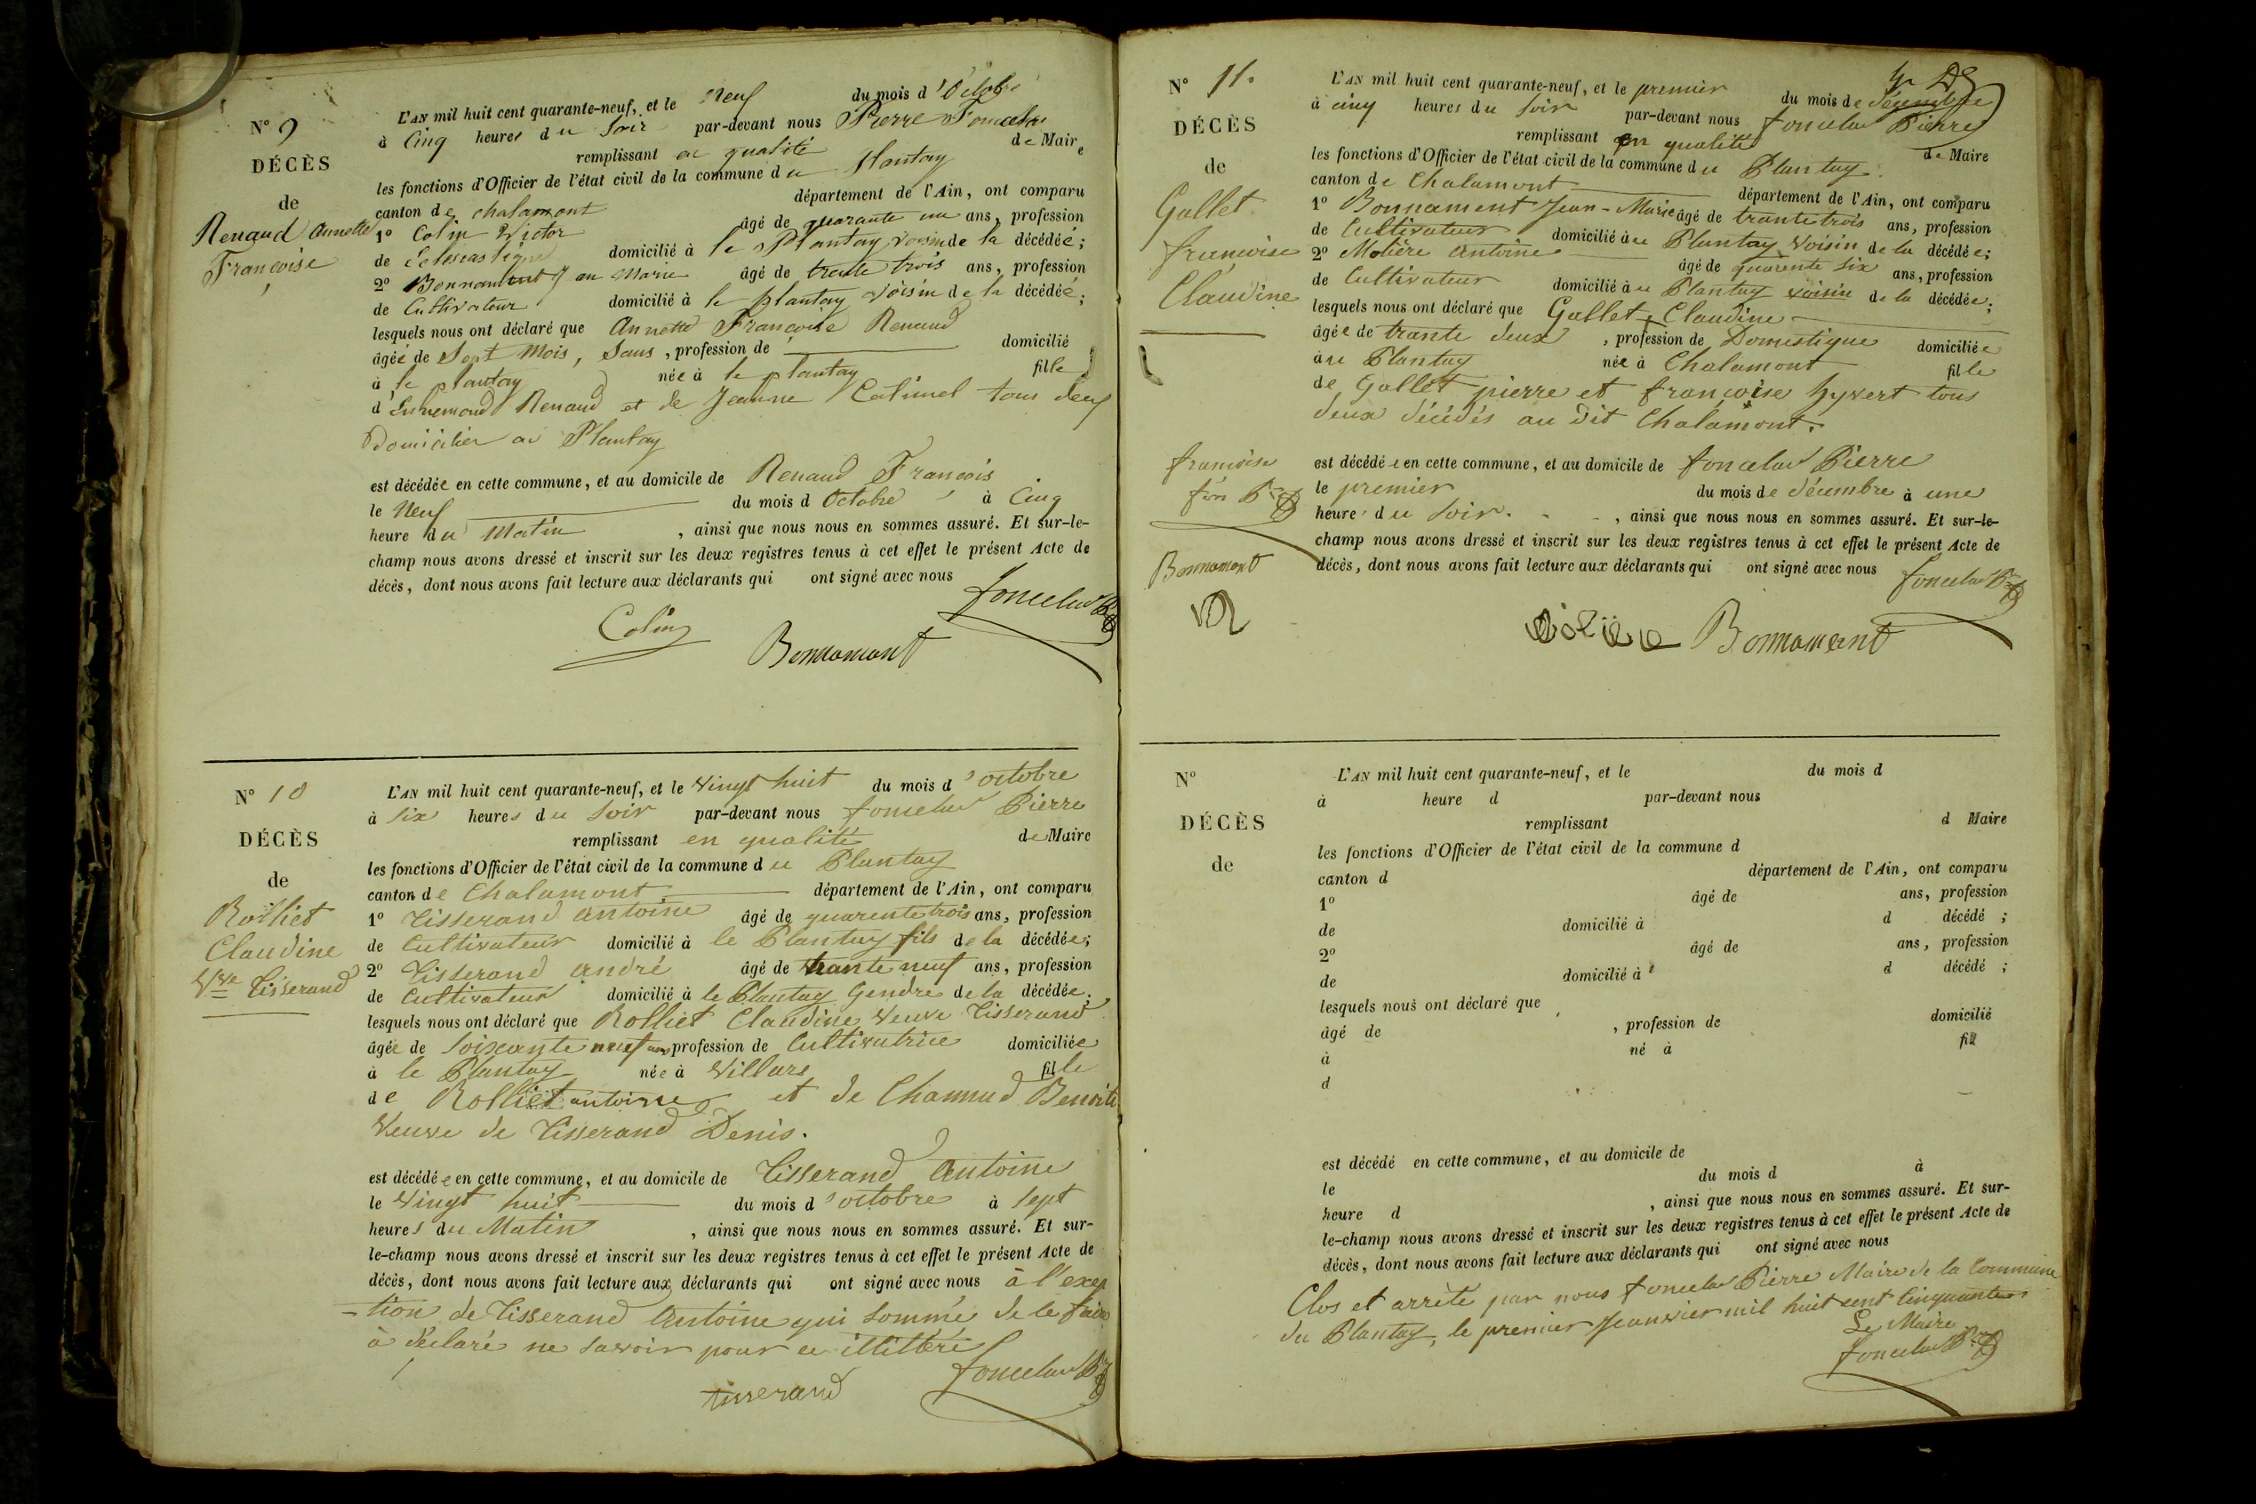 N° 9
DÉCÈS
de
Renaud Annette
Françoise
L'AN mil huit cent quarante-neuf, et le Neuf du mois d'Octobre
à Cinq heures du Soir par-devant nous Pierre
remplissant en qualité de Maire
les fonctions d'Officier de l'état civil de la commune du Plantay
canton de chalamont département de l'Ain, ont comparu
1° Colin Victor âgé de quarante un ans, profession
de domicilié à le Plantay voisin de la décédée;
2° Bonnamant Jean Marie âgé de trente trois ans, profession
de Cultivateur domicilié à le plantay voisin de la décédée;
lesquels nous ont déclaré que Annette Françoise Renaud
âgée de Sept Mois, Sans, profession de domicilié
à le plantay née à le plantay fille
d' Renaud et de Jeanne tous deux
Domicilier au Plantay
est décédée en cette commune, et au domicile de Renaud Francois
le Neuf du mois d Octobre à Cinq
heure du Matin, ainsi que nous nous en sommes assuré. Et sur-le-
champ nous avons dressé et inscrit sur les deux registres tenus à cet effet le présent Acte de
décès, dont nous avons fait lecture aux déclarants qui ont signé avec nous
Colin
Bonnamant
N° 10
DÉCÈS
de
Rolliet
Claudine
Vve Tisserand
L'AN mil huit cent quarante-neuf, et le vingt huit du mois d'octobre
à six heures du soir par-devant nous Pierre
remplissant en qualité de Maire
les fonctions d'Officier de l'état civil de la commune du Plantay
canton de Chalamont département de l'Ain, ont comparu
1° Tisserand antoine âgé de quarente trois ans, profession
de Cultivateur domicilié à le Plantay fils de la décédée;
2° Tisserand andré âgé de trante neuf ans, profession
de Cultivateur domicilié à le Plantay Gendre de la décédée;
lesquels nous ont déclaré que Rolliet Claudine veuve Tisserand
âgée de soixante neuf ans profession de Cultivatrice domiciliée
à le Plantay née à Villars fille
de Rolliet antoine et de Benoite
veuve de Tisserand Denis.
est décédée en cette commune, et au domicile de Tisserand Antoine
le vingt huit du mois d'octobre à sept
heures du Matin, ainsi que nous nous en sommes assuré. Et sur-
le-champ nous avons dressé et inscrit sur les deux registres tenus à cet effet le présent Acte de
décès, dont nous avons fait lecture aux déclarants qui ont signé avec nous à l'excep
-tion de Tisserand Antoine qui sommé de le faire
à déclaré ne savoir pour ce illitéré
tisserand
N° 11.
DÉCÈS
de
Gallet
françoise
Claudine
L'AN mil huit cent quarante-neuf, et le premier du mois de décembre
à cinq heures du soir par-devant nous Pierre
remplissant en qualité de Maire
les fonctions d'Officier de l'état civil de la commune du Plantay
canton de Chalamont département de l'Ain, ont comparu
1° Bonnament Jean-Marie âgé de trante trois ans, profession
de Cultivateur domicilié au Plantay voisin de la décédée;
2° Molière antoine âgé de quarente six ans, profession
de Cultivateur domicilié au Plantay voisin de la décédée;
lesquels nous ont déclaré que Gallet Claudine
âgée de trante deux, profession de Domestique domiciliée
au Plantay née à Chalamont fille
de Gallet pierre et françoise hyvert tous
deux décédés au dit Chalamont.
françoise
est décédée en cette commune, et au domicile de Pierre
le premier du mois de décembre à une
heure du soir., ainsi que nous nous en sommes assuré. Et sur-le-
champ nous avons dressé et inscrit sur les deux registres tenus à cet effet le présent Acte de
décès, dont nous avons fait lecture aux déclarants qui ont signé avec nous
Bonnamant
Bonnamant
N°
DÉCÈS
de
L'AN mil huit cent quarante-neuf, et le du mois d
à heure d par-devant nous
remplissant d Maire
les fonctions d'Officier de l'état civil de la commune d
canton d département de l'Ain, ont comparu
1° âgé de ans, profession
de domicilié à d décédé ;
2° âgé de ans, profession
de domicilié à d décédé ;
lesquels nous ont déclaré que
âgé de , profession de domicilié
à né à fil
d
est décédé en cette commune, et au domicile de
le du mois d à
heure d , ainsi que nous nous en sommes assuré. Et sur-
le-champ nous avons dressé et inscrit sur les deux registres tenus à cet effet le présent Acte de
décès, dont nous avons fait lecture aux déclarants qui ont signé avec nous
Clos et arrêté par nous Pierre Maire de la Commune
du Plantay, le premier Janvier mil huit cent Cinquante
Le Maire